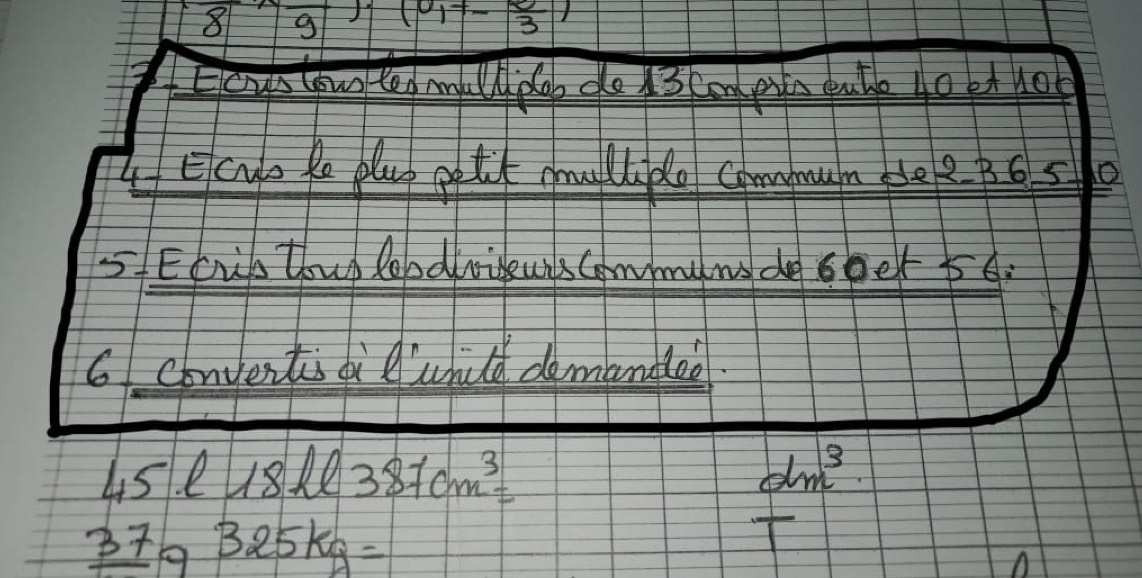 8 9 3
3- Ecris tous les multiples de 13 compris entre 40 et 100
4- Ecris le plus petit multiple commum de 2-3 6 5 10
5- Ecris tous les diviseurs communs de 60 et 56.
6 convertis à l'unité demandée.
45 l 18 hl 387 cm³ = dm³.
37 q 325 kg = T